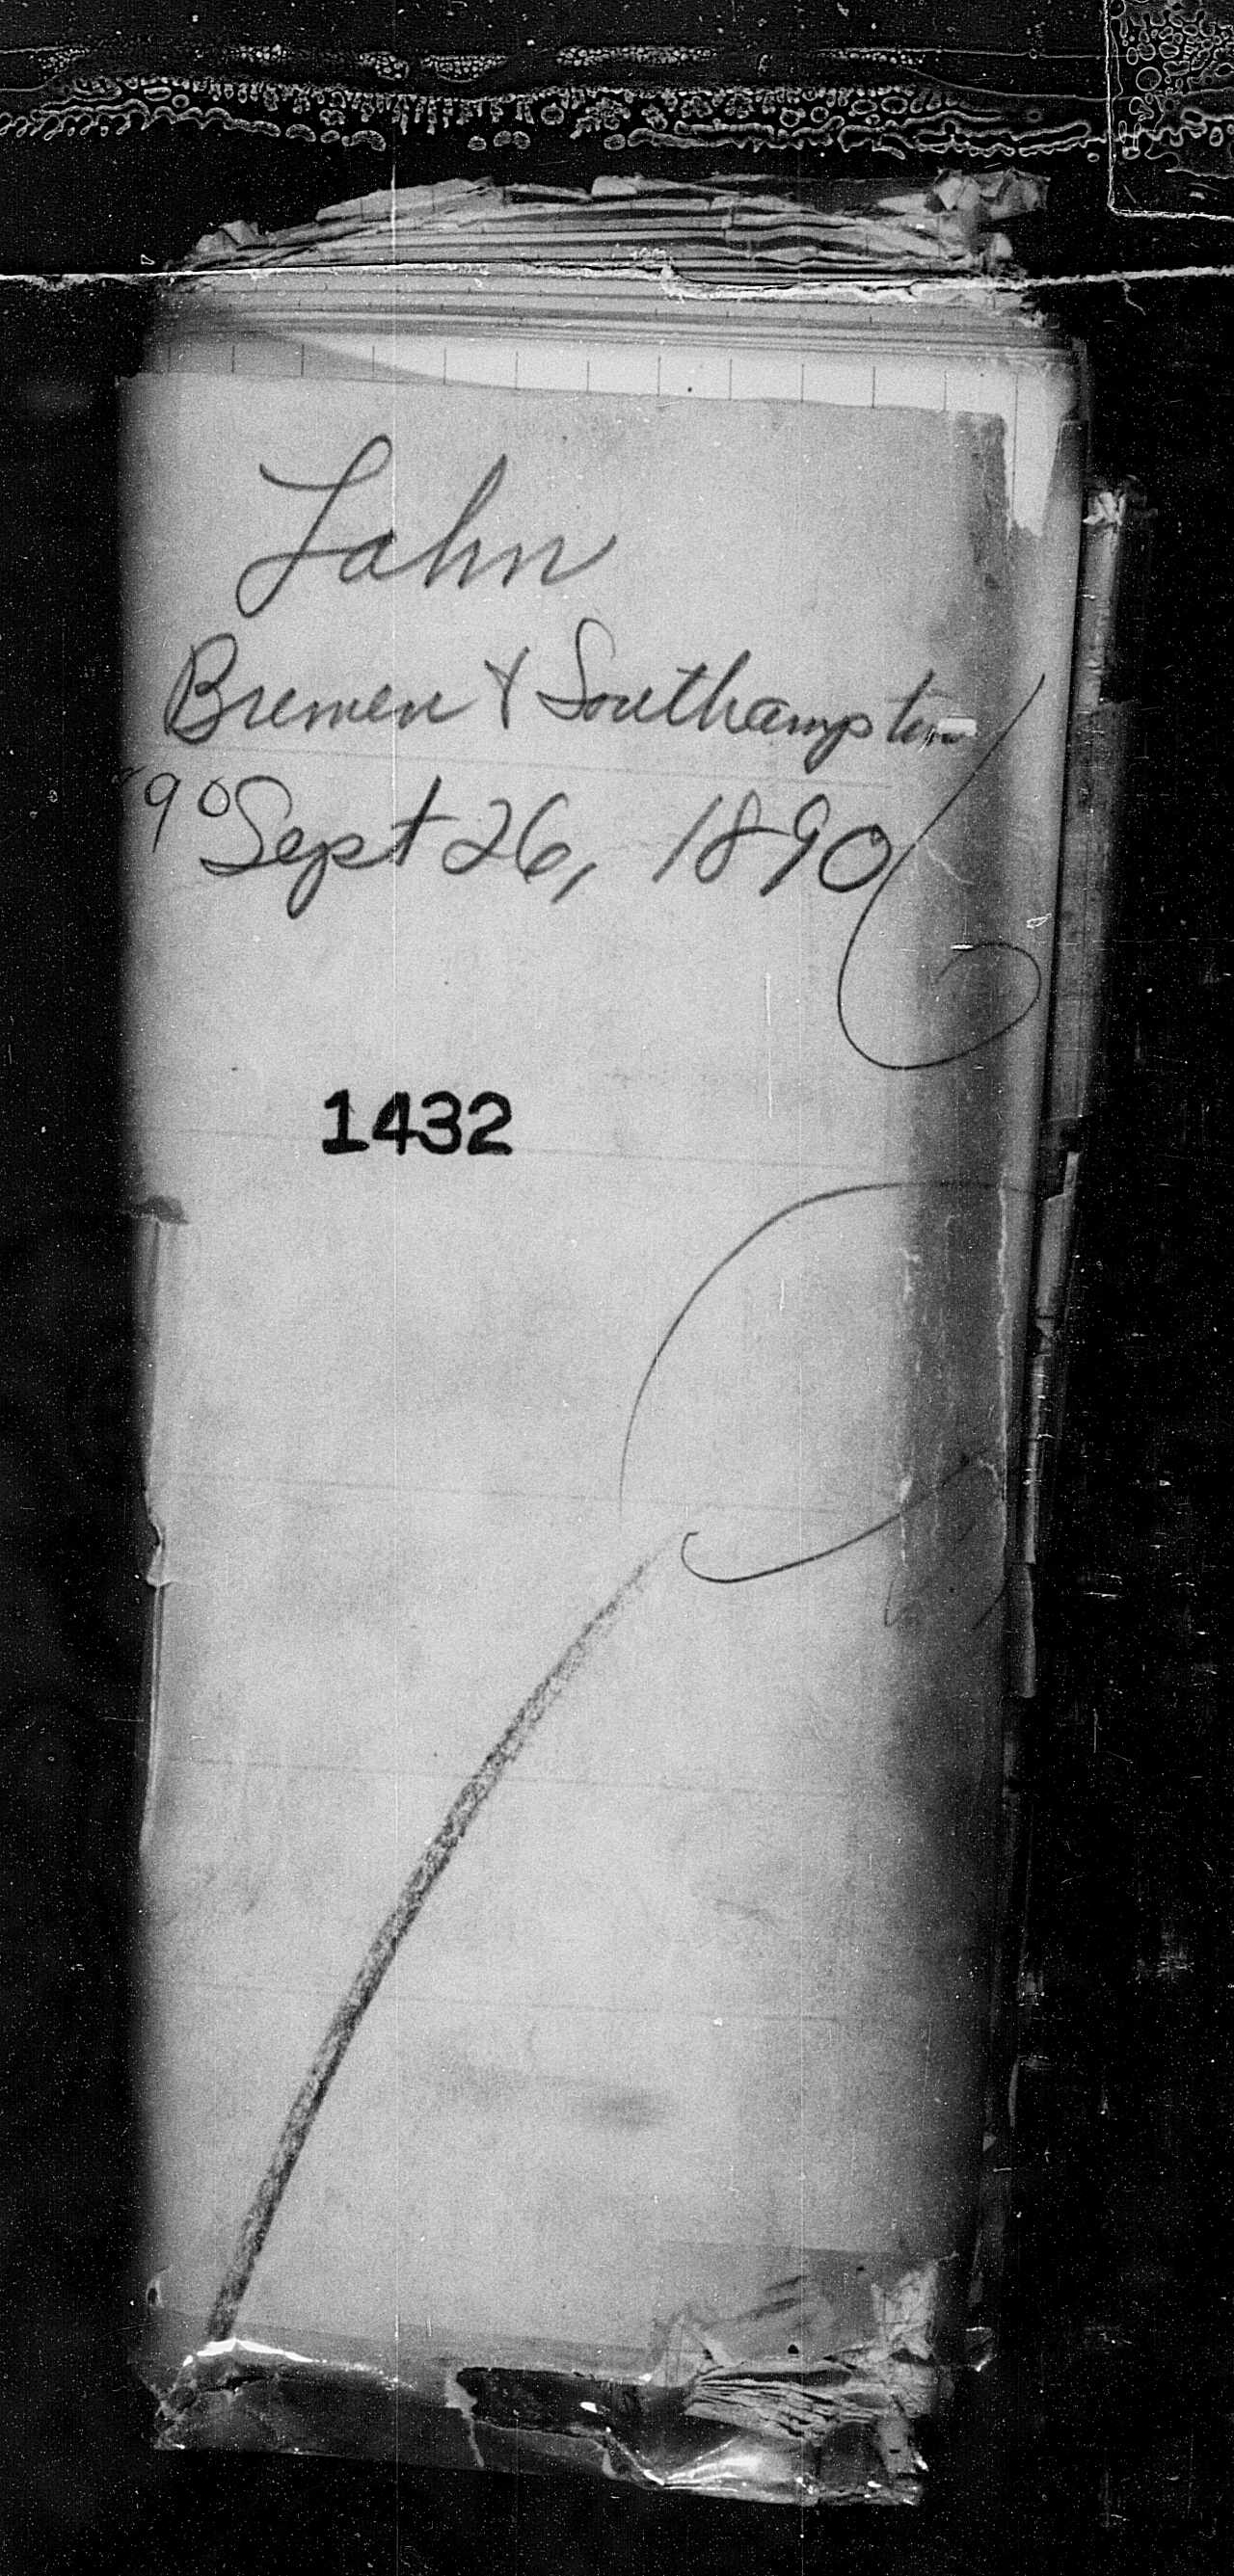 Lahn
Bremen & Southampton
90
Sept 26, 1890
1432